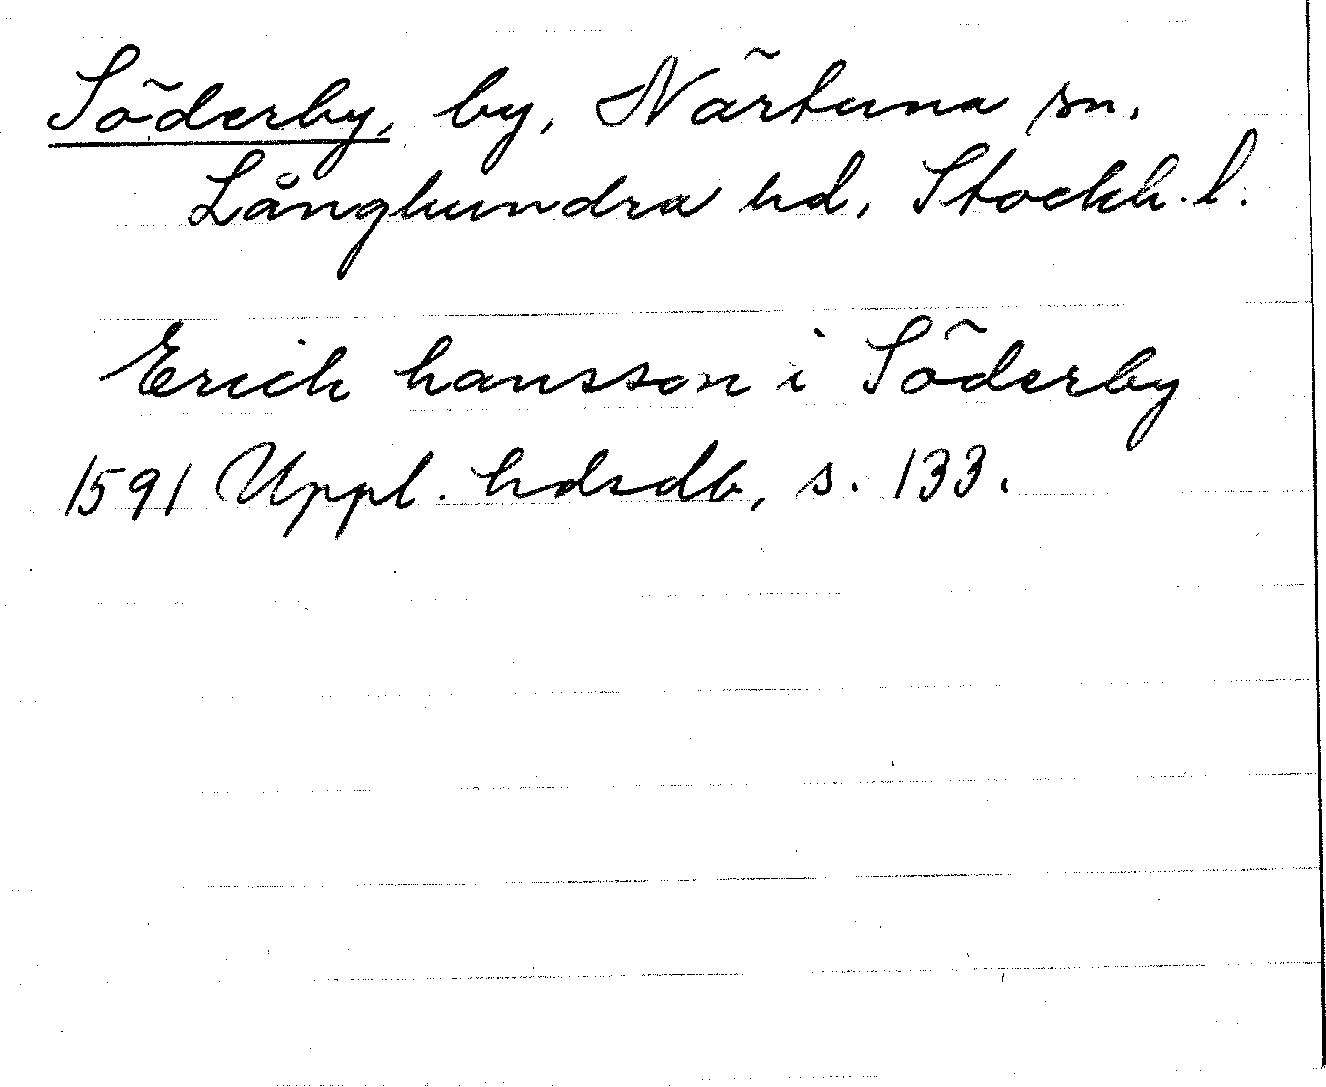 Söderby, by, Närtuna sn.
Långhundra hd, Stockh. l.
Erich hansson i Söderby
1591 Uppl. hdsdb, s. 133.